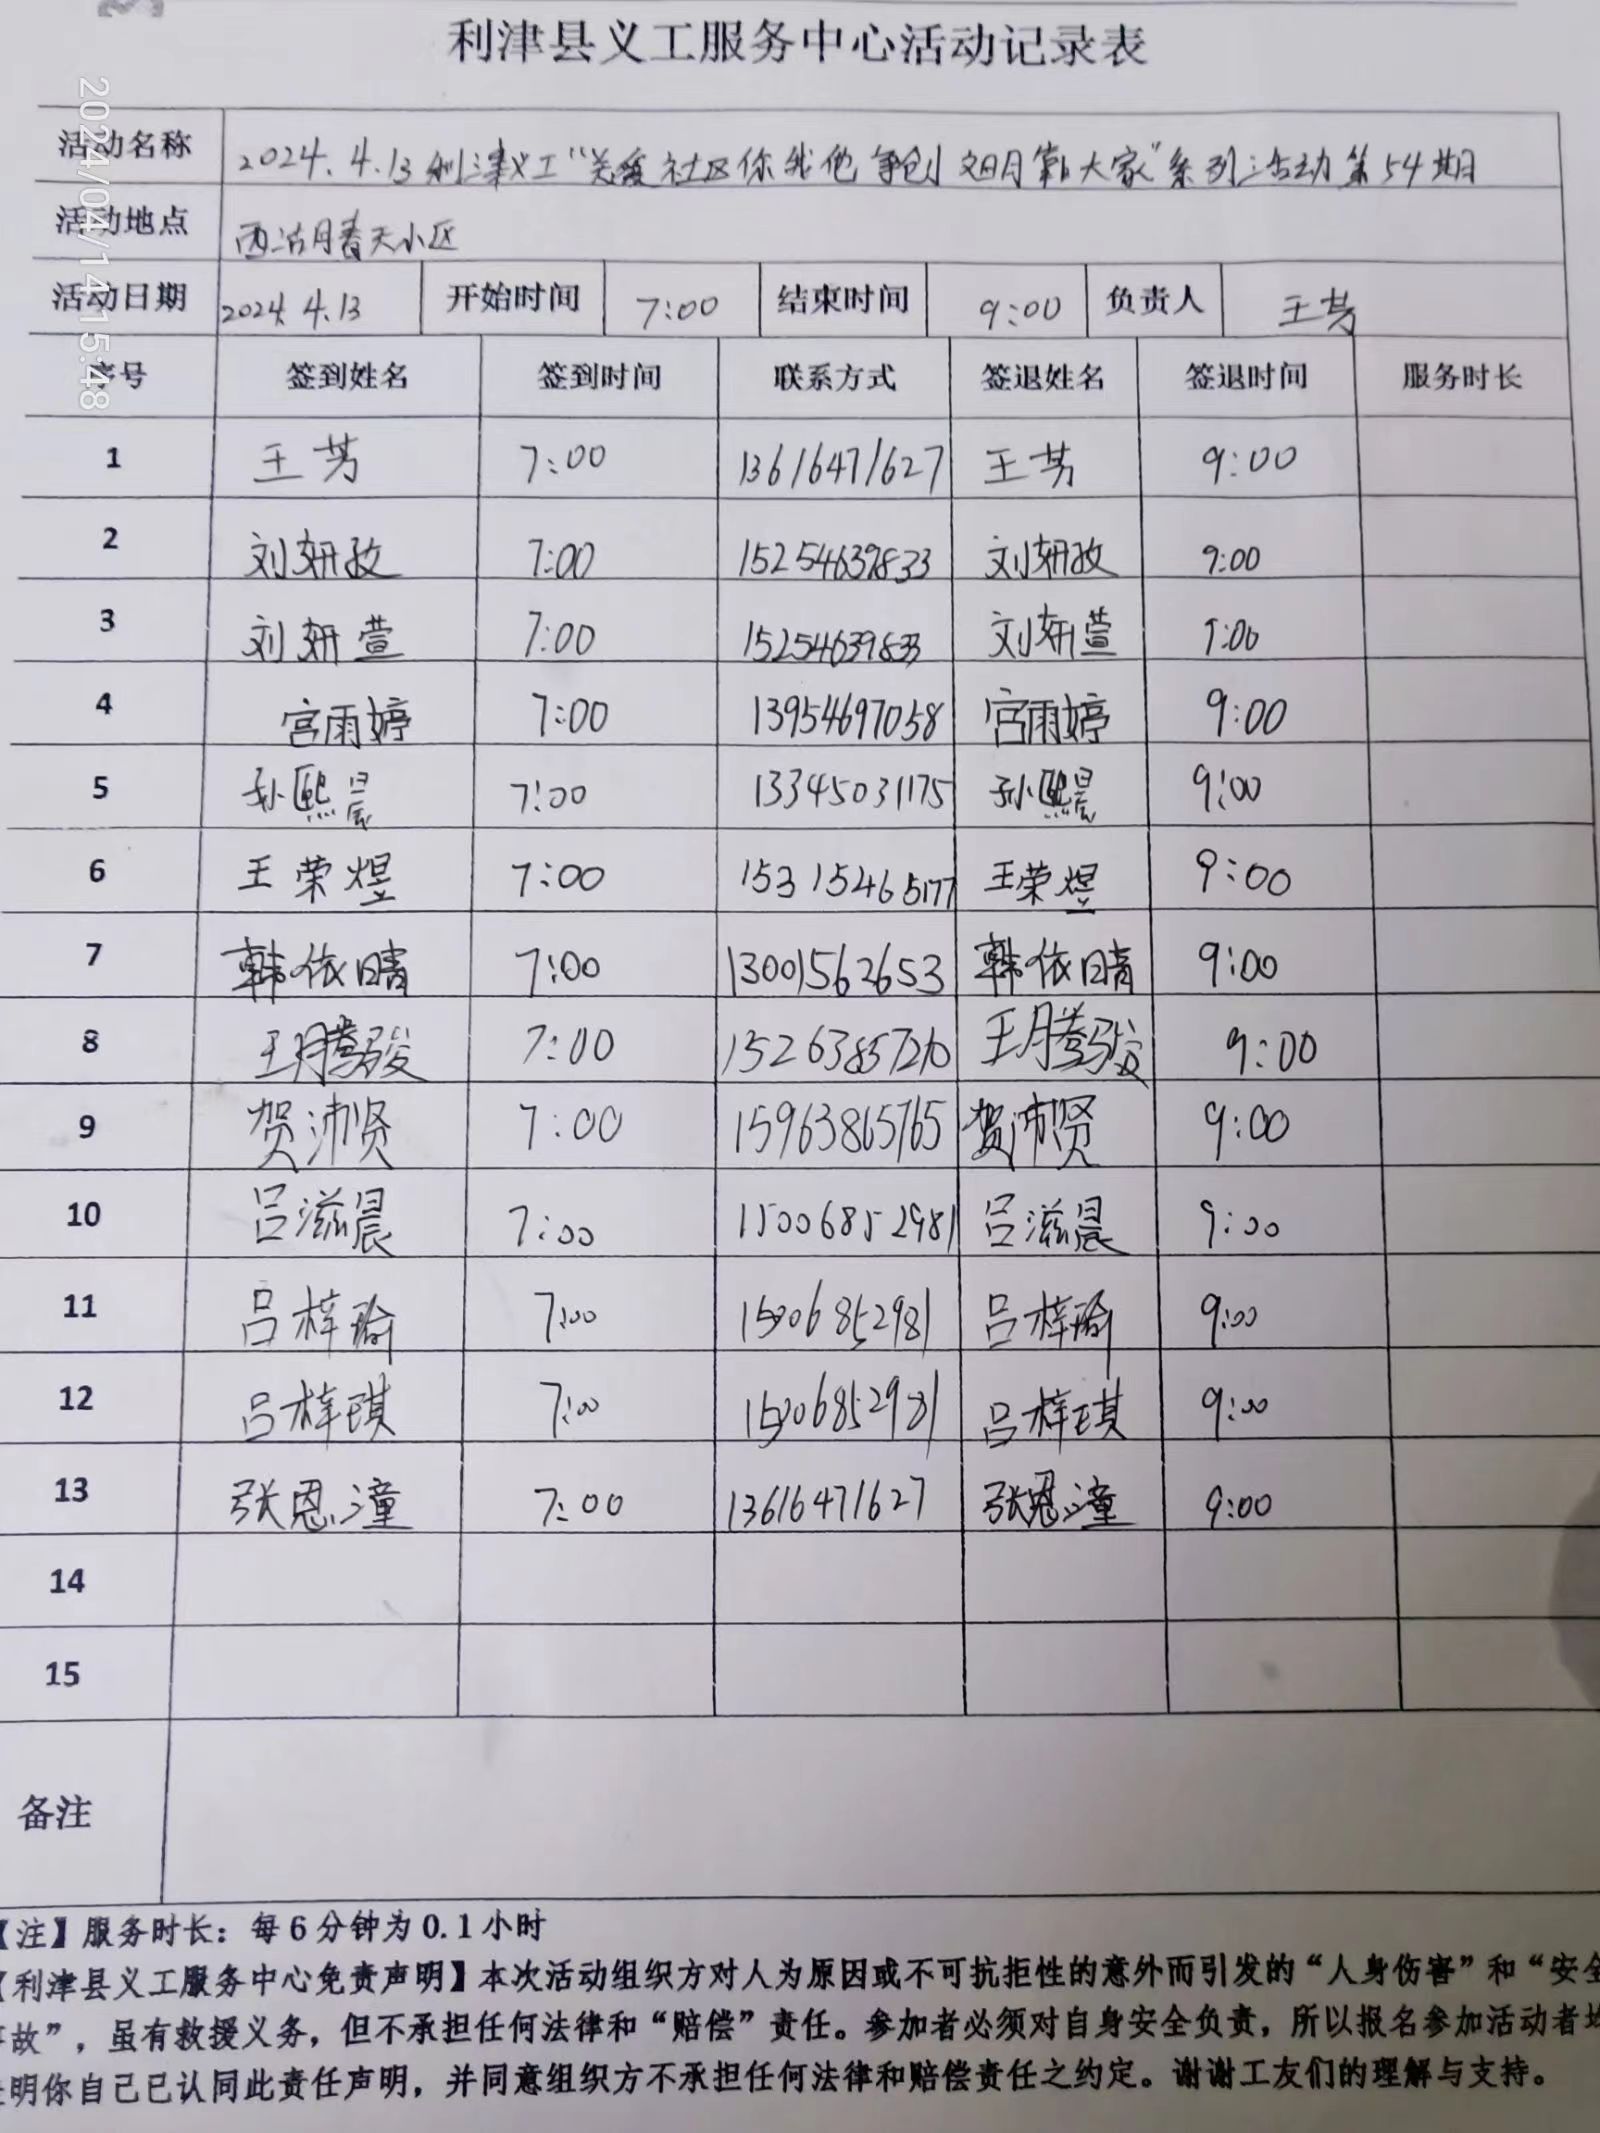 利津县义工服务中心活动记录表
2024/04/14 15:48
活动名称 2024.4.13利津义工“关爱社区你我他 争创文明靠大家”系列活动第54期
活动地点 西湖春天小区
活动日期 2024.4.13 开始时间 7:00 结束时间 9:00 负责人 王芳
序号 签到姓名 签到时间 联系方式 签退姓名 签退时间 服务时长
1 王芳 7:00 13616471627 王芳 9:00
2 刘妍孜 7:00 15254639833 刘妍孜 9:00
3 刘妍萱 7:00 15254639833 刘妍萱 9:00
4 宫雨婷 7:00 13954697058 宫雨婷 9:00
5 孙熙晨 7:00 13345031175 孙熙晨 9:00
6 王荣煜 7:00 15315465177 王荣煜 9:00
7 韩依晴 7:00 13001562653 韩依晴 9:00
8 王腾骏 7:00 王腾骏 9:00
9 贺沛贤 7:00 15963865765 贺沛贤 9:00
10 吕滋晨 7:00 15006852981 吕滋晨 9:00
11 吕梓瑜 7:00 15006852981 吕梓瑜 9:00
12 吕梓琪 7:00 15006852981 吕梓琪 9:00
13 张恩潼 7:00 13616471627 张恩潼 9:00
14
15
备注
【注】服务时长：每6分钟为0.1小时
【利津县义工服务中心免责声明】本次活动组织方对人为原因或不可抗拒性的意外而引发的“人身伤害”和“安全
事故”，虽有救援义务，但不承担任何法律和“赔偿”责任。参加者必须对自身安全负责，所以报名参加活动者均
表明你自己已认同此责任声明，并同意组织方不承担任何法律和赔偿责任之约定。谢谢工友们的理解与支持。